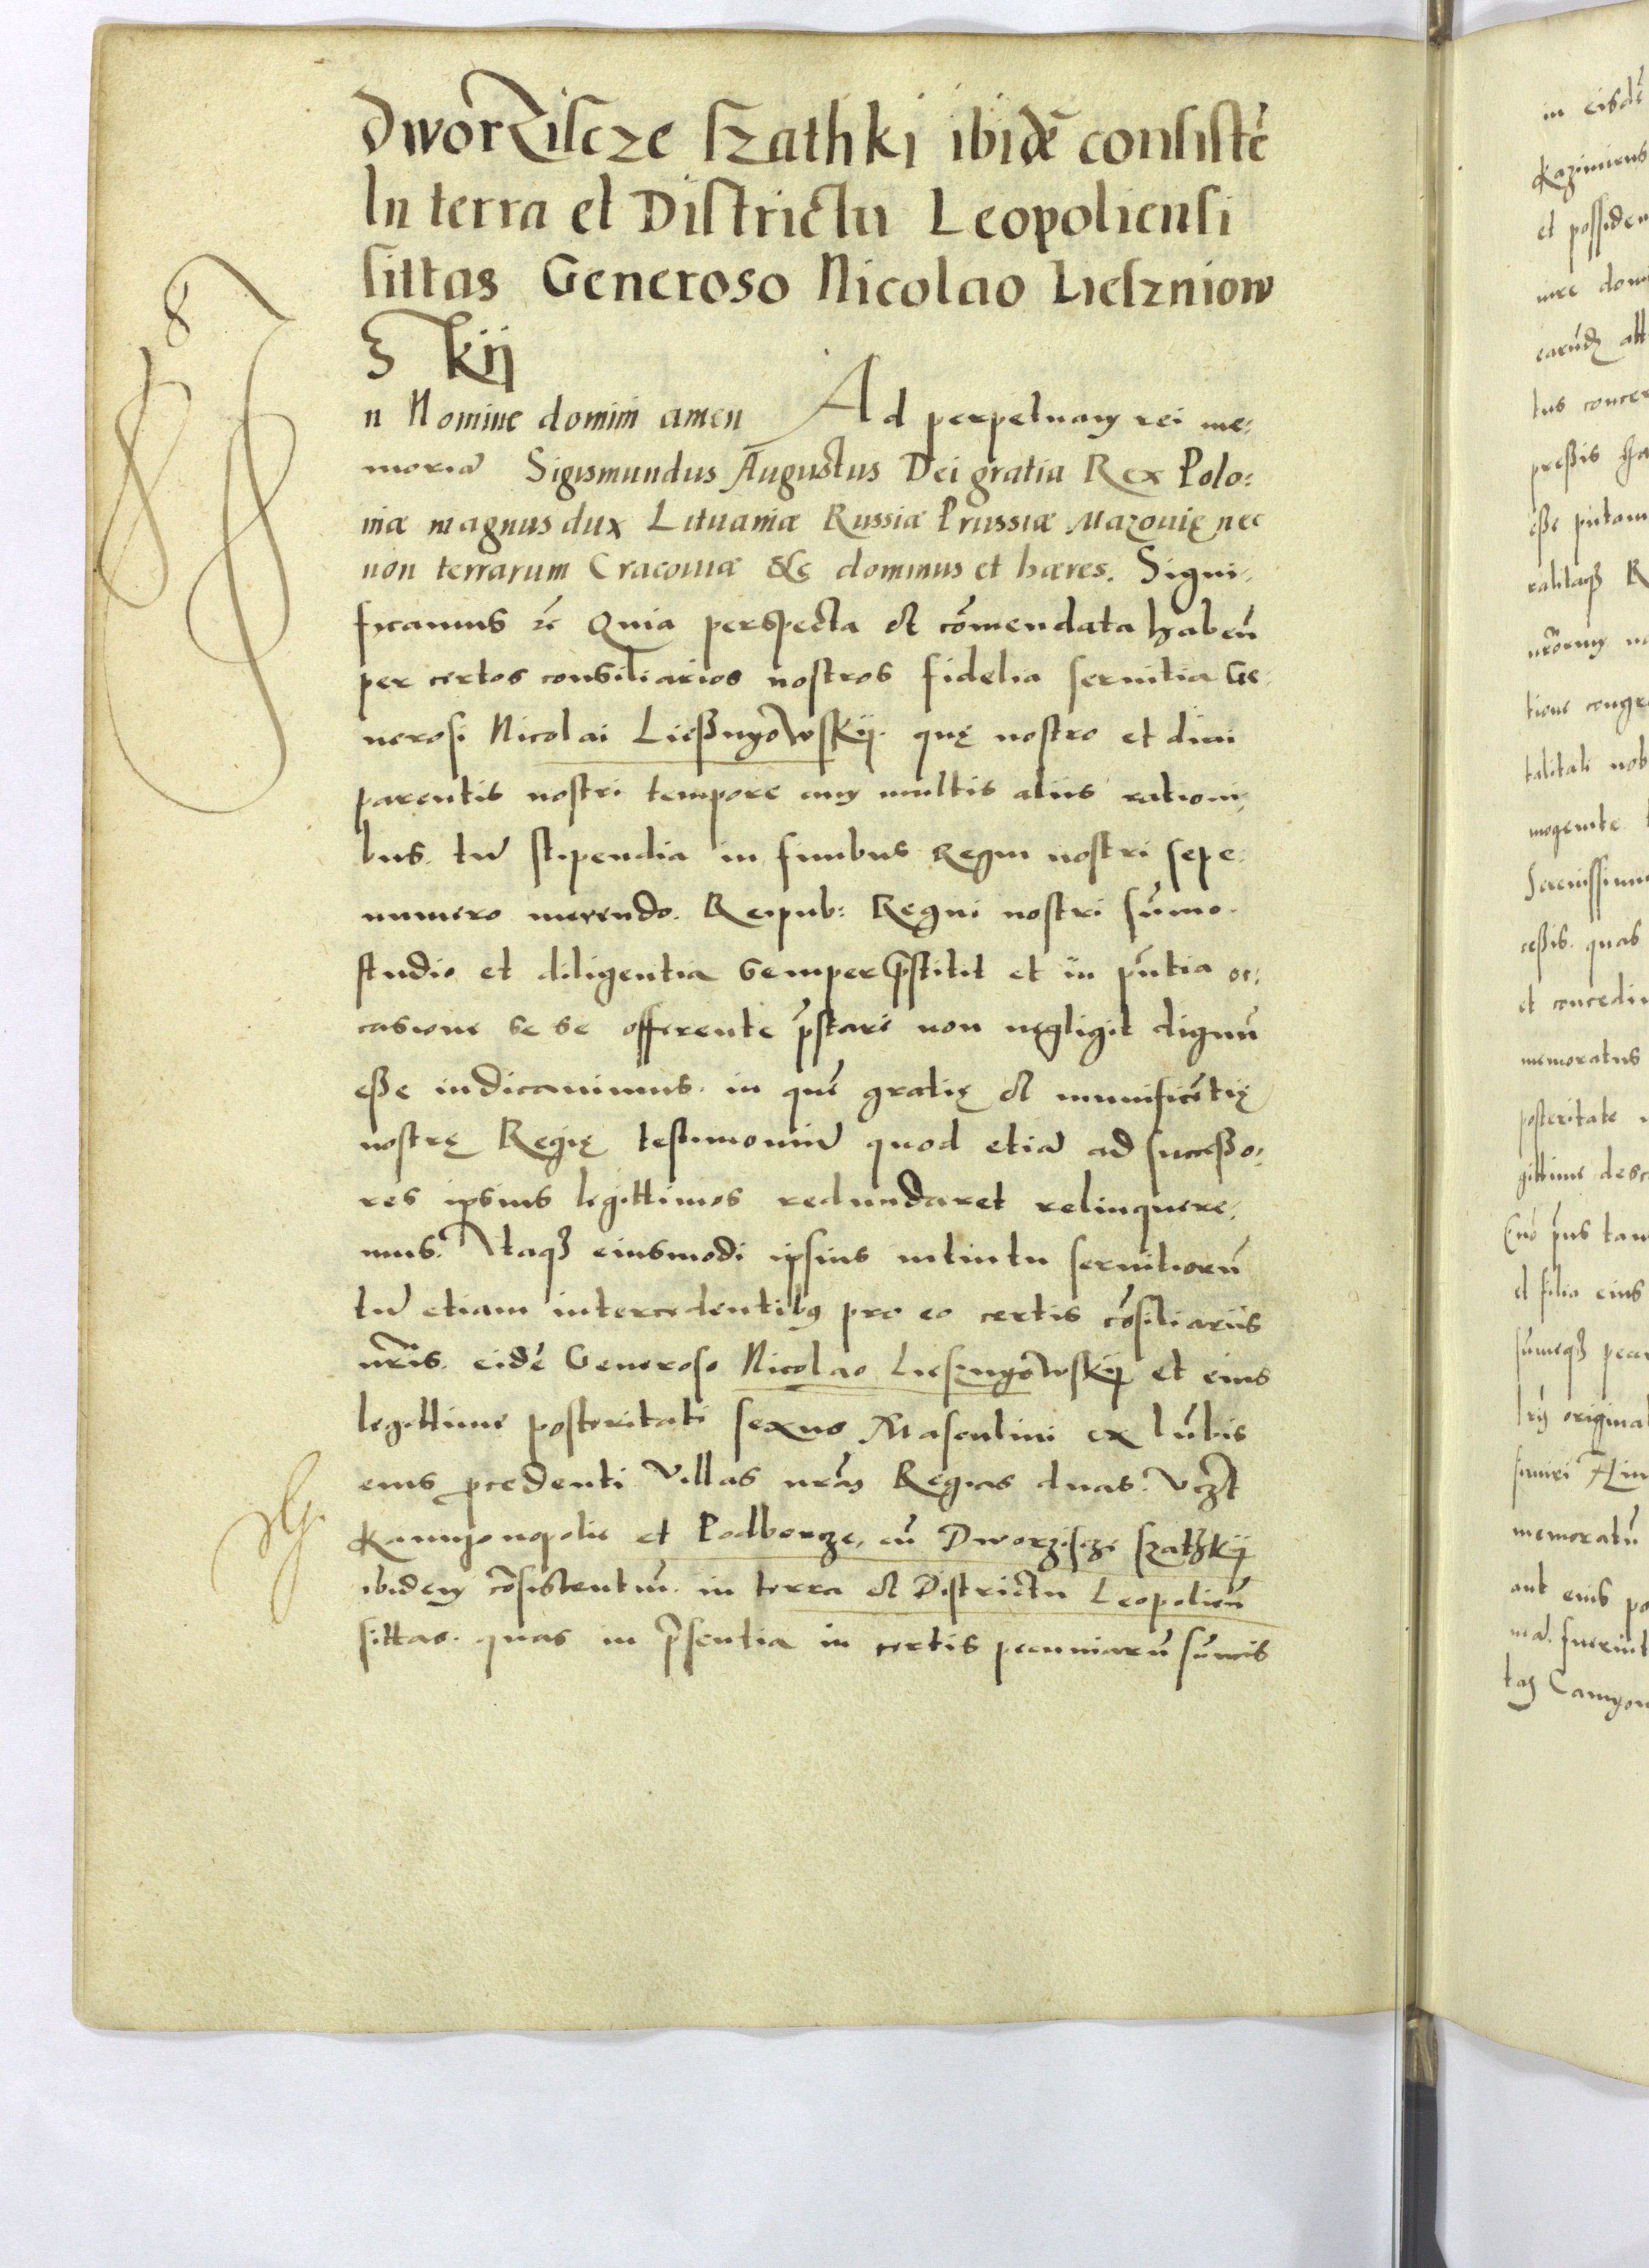 Dworziscze szathki ibidē consistē
In terra et Districtu Leopoliensi
sittas Generoso Nicolao Lieszniow
skij
n Nomine domini amen Ad perpetuam rei me:
moriā Sigismundus Augustus Dei gratia Rex Polo:
niæ magnus dux Lituaniæ Russiæ Prussiæ Mazouię nec
non terrarum Cracouiæ &c dominus et hæres. Signi:
ficamus &c Quia perspecta et cōmendata habeñ
per certos consiliarios nostros fidelia seruitia Ge:
nerosi Nicolai Ließnyowskij. quę nostro et diui
parentis nostri tempore cum multis aliis rationi:
bus. tū stipendia in finibus Regni nostri sepe:
numero merendo. Reipub: Regni nostri sūmo
studio et diligentia semper p̄stitit et in p̄ntia oc:
casione se se offerente p̄stare non negligit dignū
eße iudicauimus. in quē gratię et munificētię
nostrę Regię testimoniū quod etiā ad succeßo:
res ipsius legittimos redundaret relinquere:
mus. Itaqꝫ eiusmodi ipsius intuitu seruitiorū
tū etiam intercedentibꝰ pro eo certis cōsiliariis
nr̄is. eidē Generoso Nicolao Liesznyowskij et eius
legittime posteritati sexus Masculini ex lūbis
eius procedenti Villas nr̄as Regias duas. Vczt
Kamyonopolie et Podborcze, cū Dworziscze szathkij
ibidem cōsistentiū. in terra et Districtu Leopolieñ
sittas. quas in p̄sentia in certis pecuniarū sūmis
in eisdē
Kazimiens
et possiden
iure dom
earūdꝫ att
tus concer
preßis ha
eße putam
ralitaqꝫ R
nr̄orum
tione congr
talitati nob
mogenite
Serenissimu
ceßis. quas
et concedim
memoratus
posteritate
gittime desc
tam
et filia eius
sūmeqꝫ pecu
original
memoratū
aut eius po
fuerint
tas Camyon